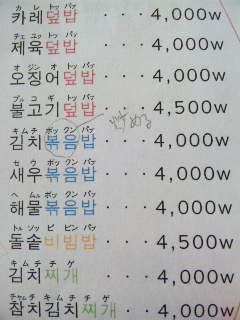 カ レ トッ パッ
카레덮밥 ··· 4,000w
チェ ユッ トッ パッ
제육덮밥 ··· 4,000w
オ ジン オ トッ パッ
오징어덮밥 ··· 4,000w
プル コ ギ トッ パッ
불고기덮밥 ··· 4,500w
キム チ ポッ クン パッ
김치볶음밥 ··· 4,000w
セ ウ ポッ クン パッ
새우볶음밥 ··· 4,000w
ヘ ムル ポッ クン パッ
해물볶음밥 ··· 4,000w
トル ソッ ビ ビン パッ
돌솥비빔밥 ··· 4,500w
キ ム チ チ ゲ
김치찌개 ··· 4,000w
チャム チ キ ム チ チ ゲ
참치김치찌개 ··· 4,000w